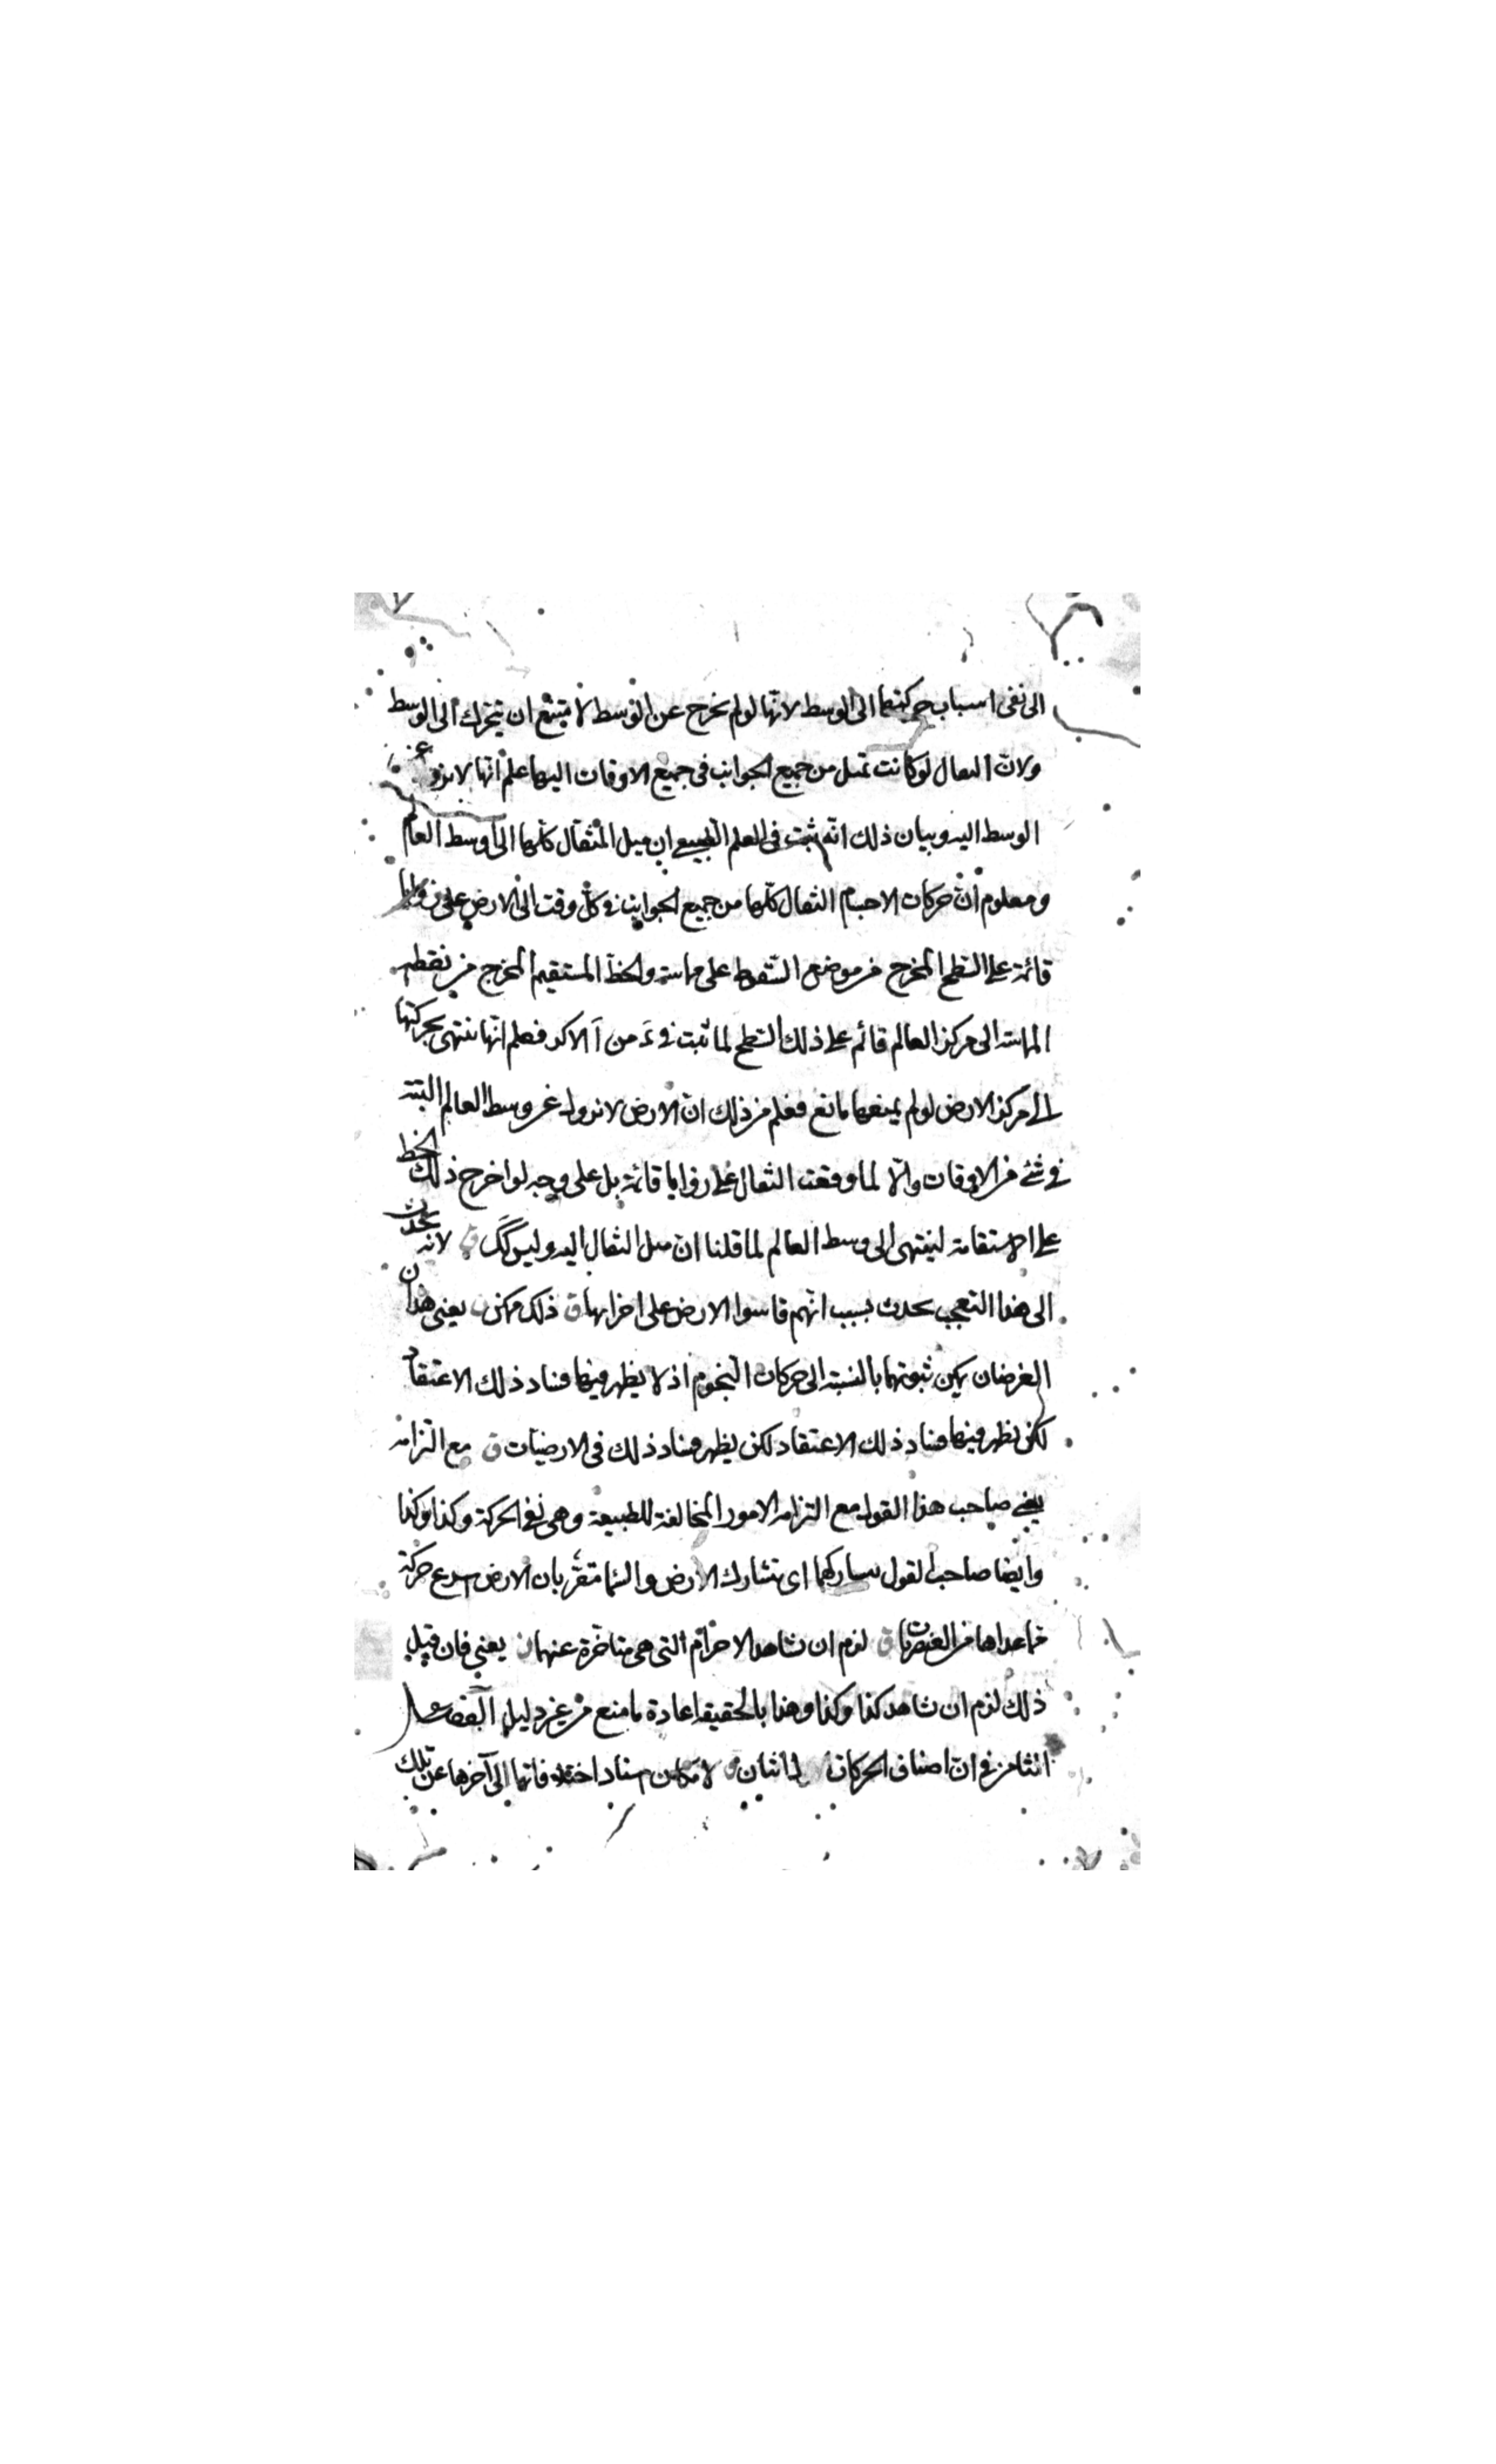 الى نفى اسباب حركتها الى الوسط لانها لو لم يخرج عن الوسط لا يمتنع ان يتحرك الى الوسط
ولان الثقال لو كانت تميل من جميع الجوانب فى جميع الاوقات اليها علم انها لا تزول عن
الوسط اليه وبيان ذلك انه ثبت فى العلم الطبيعى ان ميل الاثقال كلها الى وسط العالم
ومعلوم ان حركات الاجسام الثقال كلها من جميع الجوانب فى كل وقت الى الارض على زوايا
قائمة على السطح المخرج من موضع السقوط على مماسته والخط المستقيم المخرج من نقطة
المماسة الى مركز العالم قائم على ذلك السطح لما ثبت فى من آ الاكر فعلم انها تنتهى بحركتها
الى مركز الارض لو لم يمنعها مانع فعلم من ذلك ان الارض لا تزول عن وسط العالم البتة
فى شئ من الاوقات والا لما وقعت الثقال على زوايا قائمة بل على وجه لو اخرج ذلك الخط
على الاستقامة لينتهى الى وسط العالم لما قلنا ان ميل الثقال اليه وليس كك ق لانه يحدث
الى هذا التعجب يحدث بسبب انهم قاسوا الارض على اجزائها ق ذلك ممكن ن يعنى هذان
الغرضان يمكن ثبوتهما بالنسبة الى حركات النجوم اذ لا يظهر فيها فساد ذلك الاعتقاد
لكن يظهر فيها فساد ذلك الاعتقاد لكن يظهر فساد ذلك فى الارضيات ق مع التزامه
يعنى صاحب هذا القول مع التزامه الامور المخالفة للطبيعة وهى نفى الحركة وكذا وكذا
وايضا صاحب القول بتشاركهما اى تشارك الارض والسماء مقر بان الارض اسرع حركة
مما عداها من العنصريات ق لزم ان نشاهد الاجرام التى هى متاخرة عنها ن يعنى فان قيل
ذلك لزم ان نشاهد كذا وكذا وهذا بالحقيقة اعادة ما منع من غير دليل الفصل
الثامن فى ان اصناف الحركات اثنان ق لامكان اسناد اختلافاتها الى آخرها عن تلك